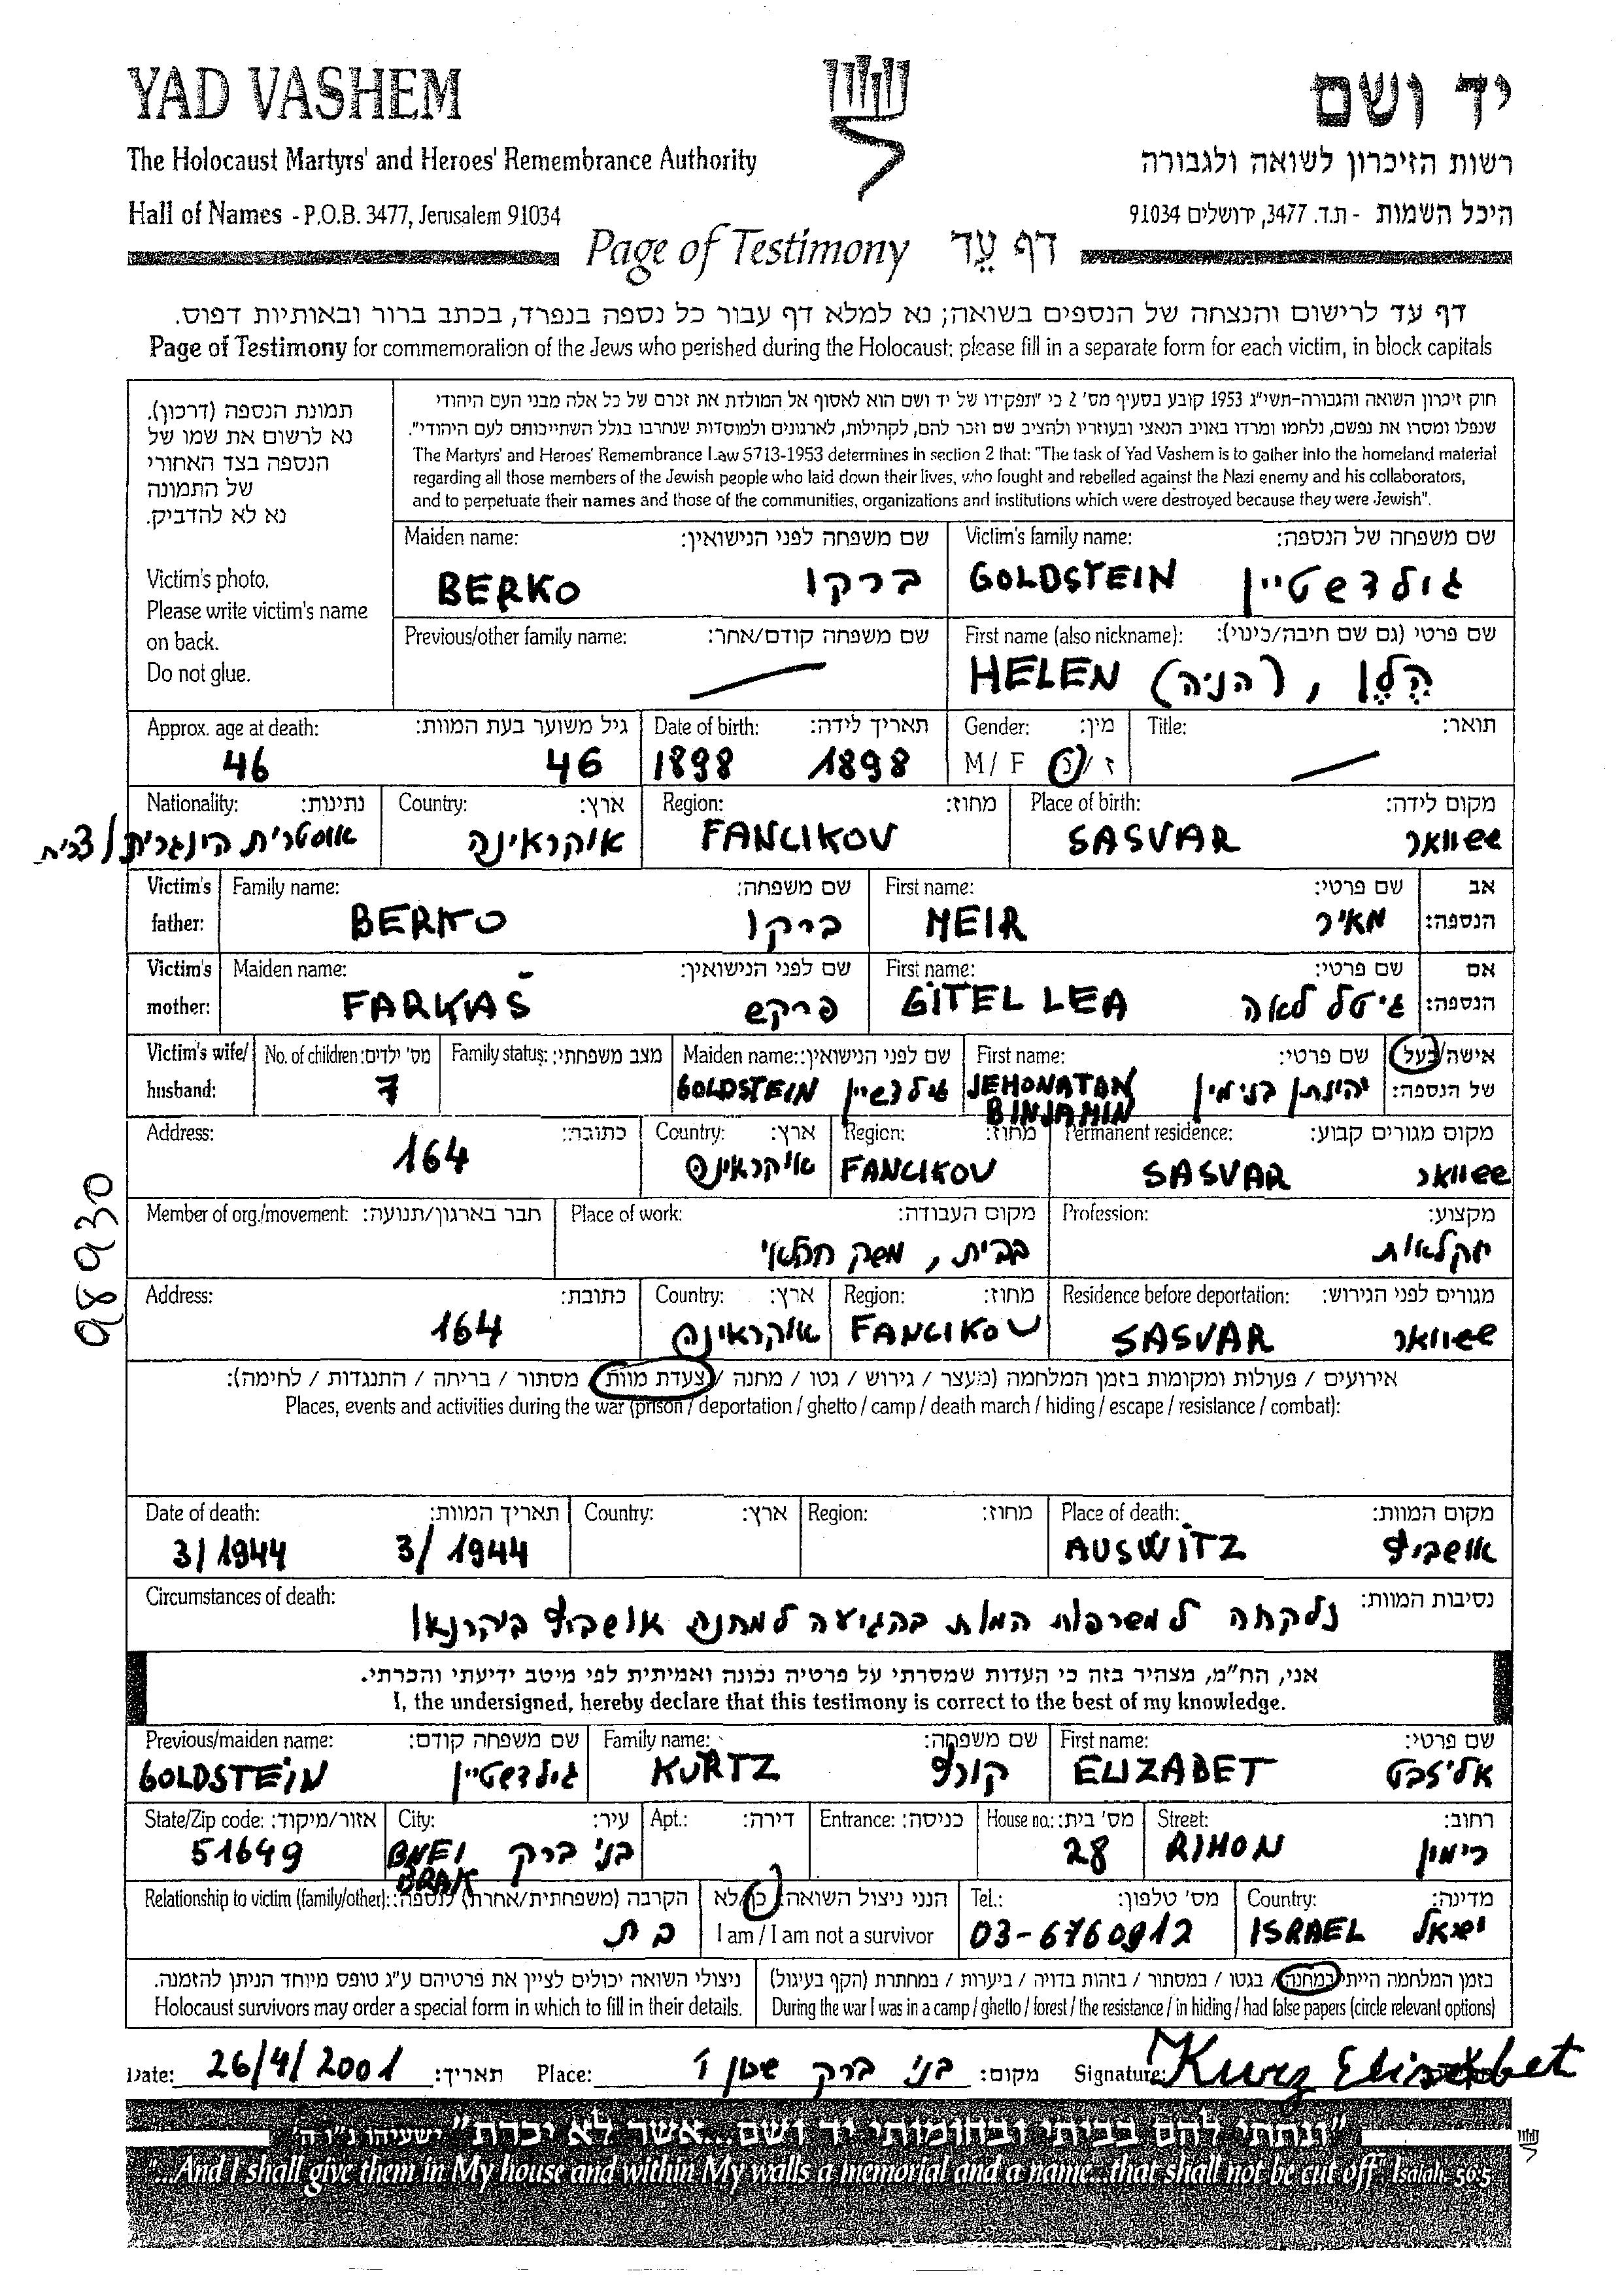 YAD VASHEM
יד ושם
The Holocaust Martyrs' and Heroes' Remembrance Authority
רשות הזיכרון לשואה ולגבורה
Hall of Names - P.O.B. 3477, Jerusalem 91034
היכל השמות - ת.ד. 3477, ירושלים 91034
Page of Testimony דף עֵד
דף עד לרישום והנצחה של הנספים בשואה; נא למלא דף עבור כל נספה בנפרד, בכתב ברור ובאותיות דפוס.
Page of Testimony for commemoration of the Jews who perished during the Holocaust; please fill in a separate form for each victim, in block capitals
תמונת הנספה (דרכון).
נא לרשום את שמו של
הנספה בצד האחורי
של התמונה
נא לא להדביק.
Victim's photo.
Please write victim's name
on back.
Do not glue.
חוק זיכרון השואה והגבורה-תשי"ג 1953 קובע בסעיף מס' 2 כי "תפקידו של יד ושם הוא לאסוף אל המולדת את זכרם של כל אלה מבני העם היהודי
שנפלו ומסרו את נפשם, נלחמו ומרדו באויב הנאצי ובעוזריו ולהציב שם וזכר להם, לקהילות, לארגונים ולמוסדות שנחרבו בגלל השתייכותם לעם היהודי".
The Martyrs' and Heroes' Remembrance Law 5713-1953 determines in section 2 that: "The task of Yad Vashem is to gather into the homeland material
regarding all those members of the Jewish people who laid down their lives, who fought and rebelled against the Nazi enemy and his collaborators,
and to perpetuate their names and those of the communities, organizations and institutions which were destroyed because they were Jewish".
Maiden name: שם משפחה לפני הנישואין:
BERKO ברקו
Victim's family name: שם משפחה של הנספה:
GOLDSTEIN גולדשטיין
Previous/other family name: שם משפחה קודם/אחר:
First name (also nickname): שם פרטי (גם שם חיבה/כינוי):
HELEN הֶלֶן , (הניה)
Approx. age at death: גיל משוער בעת המוות:
46 46
Date of birth: תאריך לידה:
1898 1898
Gender: מין:
M / F ז / נ
Title: תואר:
Nationality: נתינות:
אוסטרית הונגרית / צ'כית
Country: ארץ:
אוקראינה
Region: מחוז:
FANCIKOV
Place of birth: מקום לידה:
SASVAR ששוואר
Victim's father: אב הנספה:
Family name: שם משפחה:
BERKO ברקו
First name: שם פרטי:
MEIR מאיר
Victim's mother: אם הנספה:
Maiden name: שם לפני הנישואין:
FARKAS פרקש
First name: שם פרטי:
GITEL LEA גיטל לאה
Victim's wife/ husband: אישה/בעל של הנספה:
No. of children: מס' ילדים:
7
Family status: מצב משפחתי:
Maiden name: שם לפני הנישואין:
GOLDSTEIN גולדשטיין
First name: שם פרטי:
JEHONATAN יהונתן בנימין
BINJAMIN
Address: כתובת:
164
Country: ארץ:
אוקראינה
Region: מחוז:
FANCIKOV
Permanent residence: מקום מגורים קבוע:
SASVAR ששוואר
98930
Member of org./movement: חבר בארגון/תנועה:
Place of work: מקום העבודה:
בבית , משק חקלאי
Profession: מקצוע:
חקלאות
Address: כתובת:
164
Country: ארץ:
אוקראינה
Region: מחוז:
FANCIKOV
Residence before deportation: מגורים לפני הגירוש:
SASVAR ששוואר
אירועים / פעולות ומקומות בזמן המלחמה (מעצר / גירוש / גטו / מחנה / צעדת מוות / מסתור / בריחה / התנגדות / לחימה):
Places, events and activities during the war (prison / deportation / ghetto / camp / death march / hiding / escape / resistance / combat):
Date of death: תאריך המוות:
3/1944 3/1944
Country: ארץ:
Region: מחוז:
Place of death: מקום המוות:
AUSWITZ אושביץ
Circumstances of death: נסיבות המוות:
נלקחה למשרפות המות בהגיעה למחנה אושביץ בירקנאו
אני, הח"מ, מצהיר בזה כי העדות שמסרתי על פרטיה נכונה ואמיתית לפי מיטב ידיעתי והכרתי.
I, the undersigned, hereby declare that this testimony is correct to the best of my knowledge.
Previous/maiden name: שם משפחה קודם:
GOLDSTEIN גולדשטיין
Family name: שם משפחה:
KURTZ קורץ
First name: שם פרטי:
ELIZABET אליזבט
State/Zip code: אזור/מיקוד:
51649
City: עיר:
BNEI BRAK בני ברק
Apt.: דירה:
Entrance: כניסה:
House no.: מס' בית:
28
Street: רחוב:
RIMON רימון
Relationship to victim (family/other): הקרבה (משפחתית/אחרת) לנספה:
בת
הנני ניצול השואה: כן/לא
I am / I am not a survivor
Tel.: מס' טלפון:
03-6760912
Country: מדינה:
ISRAEL ישראל
ניצולי השואה יכולים לציין את פרטיהם ע"ג טופס מיוחד הניתן להזמנה.
Holocaust survivors may order a special form in which to fill in their details.
בזמן המלחמה הייתי במחנה / בגטו / במסתור / בזהות בדויה / ביערות / במחתרת (הקף בעיגול)
During the war I was in a camp / ghetto / forest / the resistance / in hiding / had false papers (circle relevant options)
Date: 26/4/2001 תאריך: Place: בני ברק מקום: Signature: Kurz Elisabet
"ונתתי להם בביתי ובחומותי יד ושם...אשר לא יכרת" ישעיהו נ"ו ה'
"...And I shall give them in My house and within My walls a memorial and a name...that shall not be cut off." Isaiah, 56:5